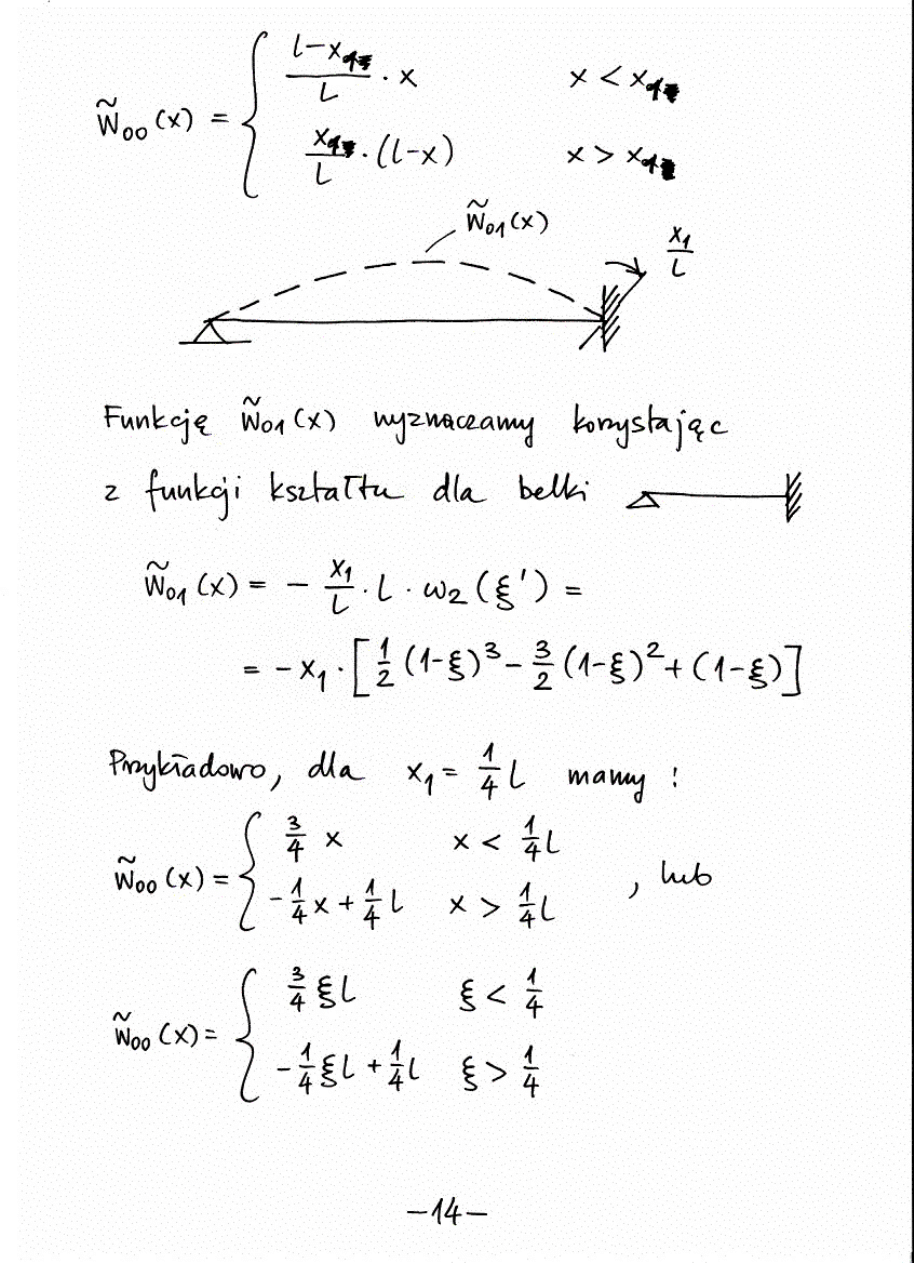 w̃₀₀(x) = { (l-x₁)/L · x    x < x₁
x₁/L · (l-x)    x > x₁
w̃₀₁(x)
x₁/L
Funkcję w̃₀₁(x) wyznaczamy korzystając
z funkcji kształtu dla belki
w̃₀₁(x) = - x₁/L · L · ω₂(ξ') =
= -x₁ · [1/2 (1-ξ)³ - 3/2 (1-ξ)² + (1-ξ)]
Przykładowo, dla x₁ = 1/4 L mamy:
w̃₀₀(x) = { 3/4 x    x < 1/4 L
-1/4 x + 1/4 L    x > 1/4 L , lub
w̃₀₀(x) = { 3/4 ξL    ξ < 1/4
-1/4 ξL + 1/4 L    ξ > 1/4
-14-